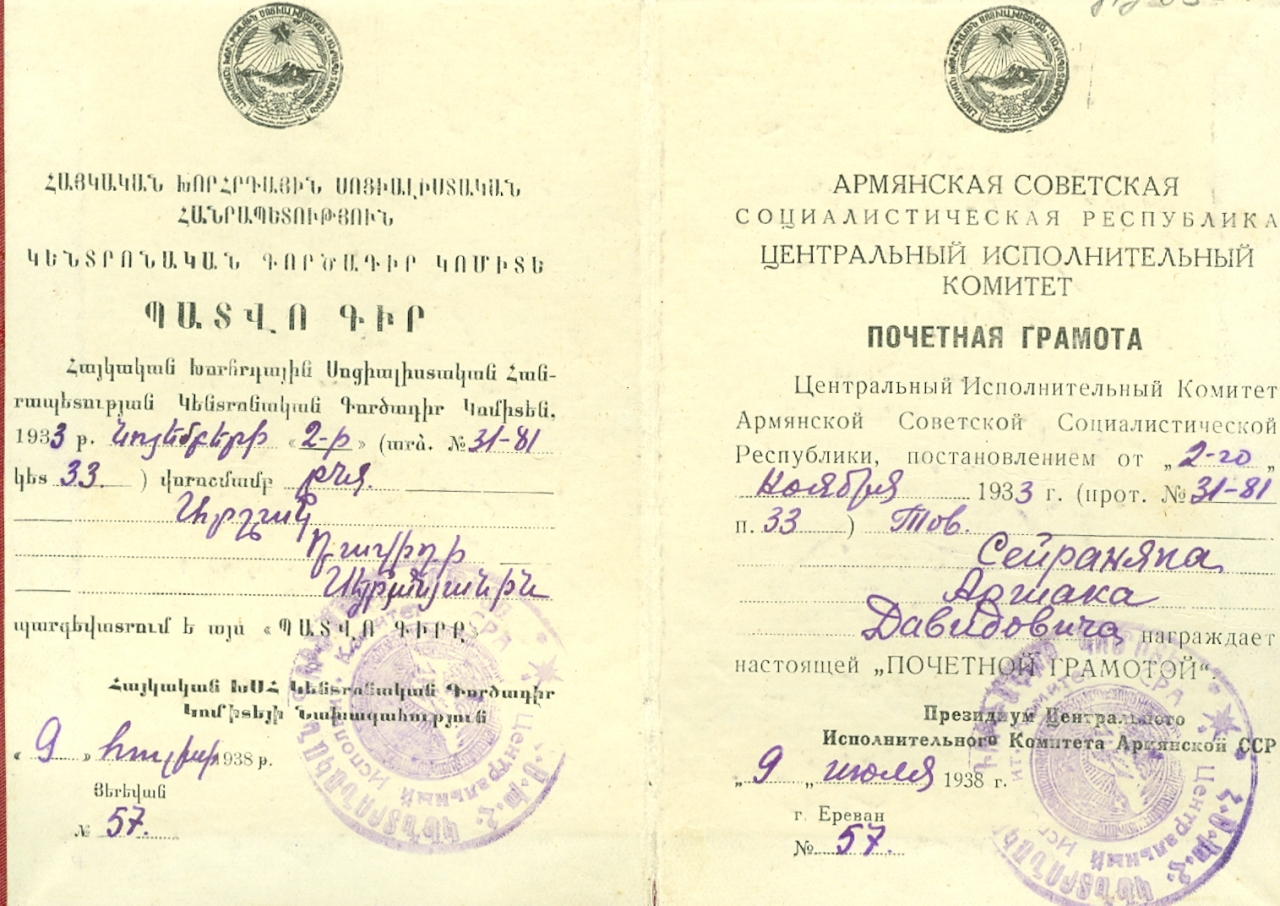 ՀԱՅԿԱԿԱՆ ԽՈՐՀՐԴԱՅԻՆ ՍՈՑԻԱԼԻՍՏԱԿԱՆ
ՀԱՆՐԱՊԵՏՈՒԹՅՈՒՆ
ԿԵՆՏՐՈՆԱԿԱՆ ԳՈՐԾԱԴԻՐ ԿՈՄԻՏԵ
ՊԱՏՎՈ ԳԻՐ
Հայկական Խորհրդային Սոցիալիստական Հան-
րապետության Կենտրոնական Գործադիր Կոմիտեն,
1933 թ. նոյեմբերի «2-ի» (արձ. № 31-81
կետ 33. ) վորոշմամբ ընկ.
Արշակ
Դավիդի
Սեյրանյանին
պարգևատրում է այս «ՊԱՏՎՈ ԳԻՐՔ»
Հայկական ԽՍՀ Կենտրոնական Գործադիր
Կոմիտեյի Նախագահություն
« 9 » հուլիսի 1938 թ.
Յերեվան
№ 57.
АРМЯНСКАЯ СОВЕТСКАЯ
СОЦИАЛИСТИЧЕСКАЯ РЕСПУБЛИКА
ЦЕНТРАЛЬНЫЙ ИСПОЛНИТЕЛЬНЫЙ
КОМИТЕТ
ПОЧЕТНАЯ ГРАМОТА
Центральный Исполнительный Комитет
Армянской Советской Социалистической
Республики, постановлением от „2-го„
Ноября 1933 г. (прот. № 31-81
п. 33 ) Тов.
Сейраняна
Аршака
Давидовича награждает
настоящей „ПОЧЕТНОЙ ГРАМОТОЙ“.
Президиум Центрального
Исполнительного Комитета Армянской ССР
„ 9 „ июля 1938 г.
г. Ереван
№ 57.